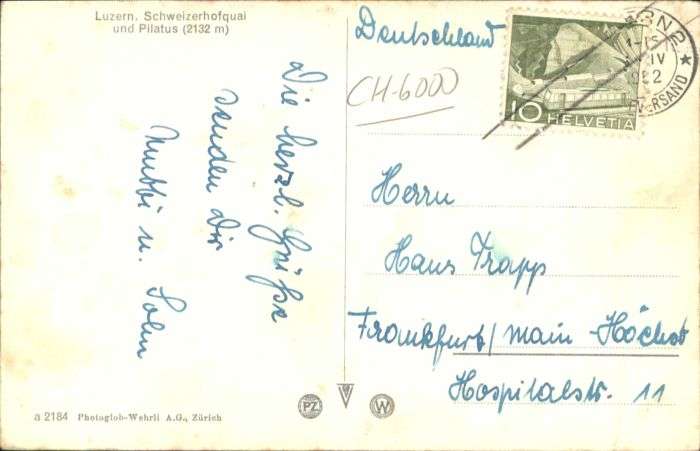 Luzern, Schweizerhofquai
und Pilatus (2132 m)
Die herzl. Grüße
senden Dir
Mutti u. Sohn
a 2184 Photoglob-Wehrli A.G., Zürich
PZ
W
Deutschland
CH-6000
10 HELVETIA
BRN 2
IV
VERSAND
Herrn
Hans Trapp
Frankfurt/Main-Höchst
Hospitalstr. 11